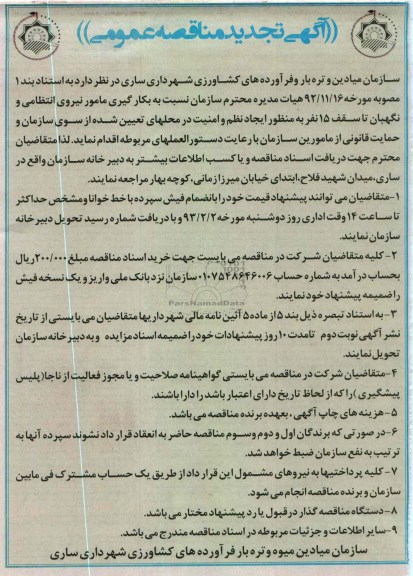 ((آگهی تجدید مناقصه عمومی))
سازمان میادین و تره بار و فرآورده های کشاورزی شهرداری ساری در نظر دارد به استناد بند ۱
مصوبه مورخه ۹۲/۱۱/۱۶ هیات مدیره محترم سازمان نسبت به بکارگیری مامور نیروی انتظامی و
نگهبان تا سقف ۱۵ نفر به منظور ایجاد نظم و امنیت در محلهای تعیین شده از سوی سازمان و
حمایت قانونی از مامورین سازمان با رعایت دستورالعملهای مربوطه اقدام نماید. لذا متقاضیان
محترم جهت دریافت اسناد مناقصه و یا کسب اطلاعات بیشتر به دبیر خانه سازمان واقع در
ساری، میدان شهید فلاح، ابتدای خیابان میرزازمانی، کوچه بهار مراجعه نمایند.
۱-متقاضیان می توانند پیشنهاد قیمت خود را بانضمام فیش سپرده با خط خوانا و مشخص حداکثر
تا ساعت ۱۴ وقت اداری روز دوشنبه مورخه ۹۳/۲/۲ و با دریافت شماره رسید تحویل دبیر خانه
سازمان نمایند.
۲-کلیه متقاضیان شرکت در مناقصه می بایست جهت خرید اسناد مناقصه مبلغ ۲۰۰/۰۰۰ ریال
بحساب درآمد به شماره حساب ۰۱۰۷۵۴۸۶۴۶۰۰۶ سازمان نزد بانک ملی واریز و یک نسخه فیش
را ضمیمه پیشنهاد خود نمایند.
ParsNamadData
۳- به استناد تبصره ذیل بند ۵ از ماده ۵ آئین نامه مالی شهرداریها متقاضیان می بایستی از تاریخ
نشر آگهی نوبت دوم تامدت ۱۰ روز پیشنهادات خود را ضمیمه اسناد مزایده و به دبیر خانه سازمان
تحویل نمایند.
۴-متقاضیان شرکت در مناقصه می بایستی گواهینامه صلاحیت و یا مجوز فعالیت از ناجا(پلیس
پیشگیری) را که از لحاظ تاریخ دارای اعتبار باشد را دارا باشند.
۵-هزینه های چاپ آگهی ، بعهده برنده مناقصه می باشد.
۶-در صورتی که برندگان اول و دوم وسوم مناقصه حاضر به انعقاد قرار داد نشوند سپرده آنها به
ترتیب به نفع سازمان ضبط خواهد شد.
۷-کلیه پرداختیها به نیروهای مشمول این قرار داد از طریق یک حساب مشترک فی مابین
سازمان و برنده مناقصه انجام می شود.
۸-دستگاه مناقصه گذار در قبول یا رد پیشنهاد مختار می باشد.
۹-سایر اطلاعات و جزئیات مربوطه در اسناد مناقصه مندرج می باشد.
سازمان میادین میوه و تره بار فرآورده های کشاورزی شهرداری ساری